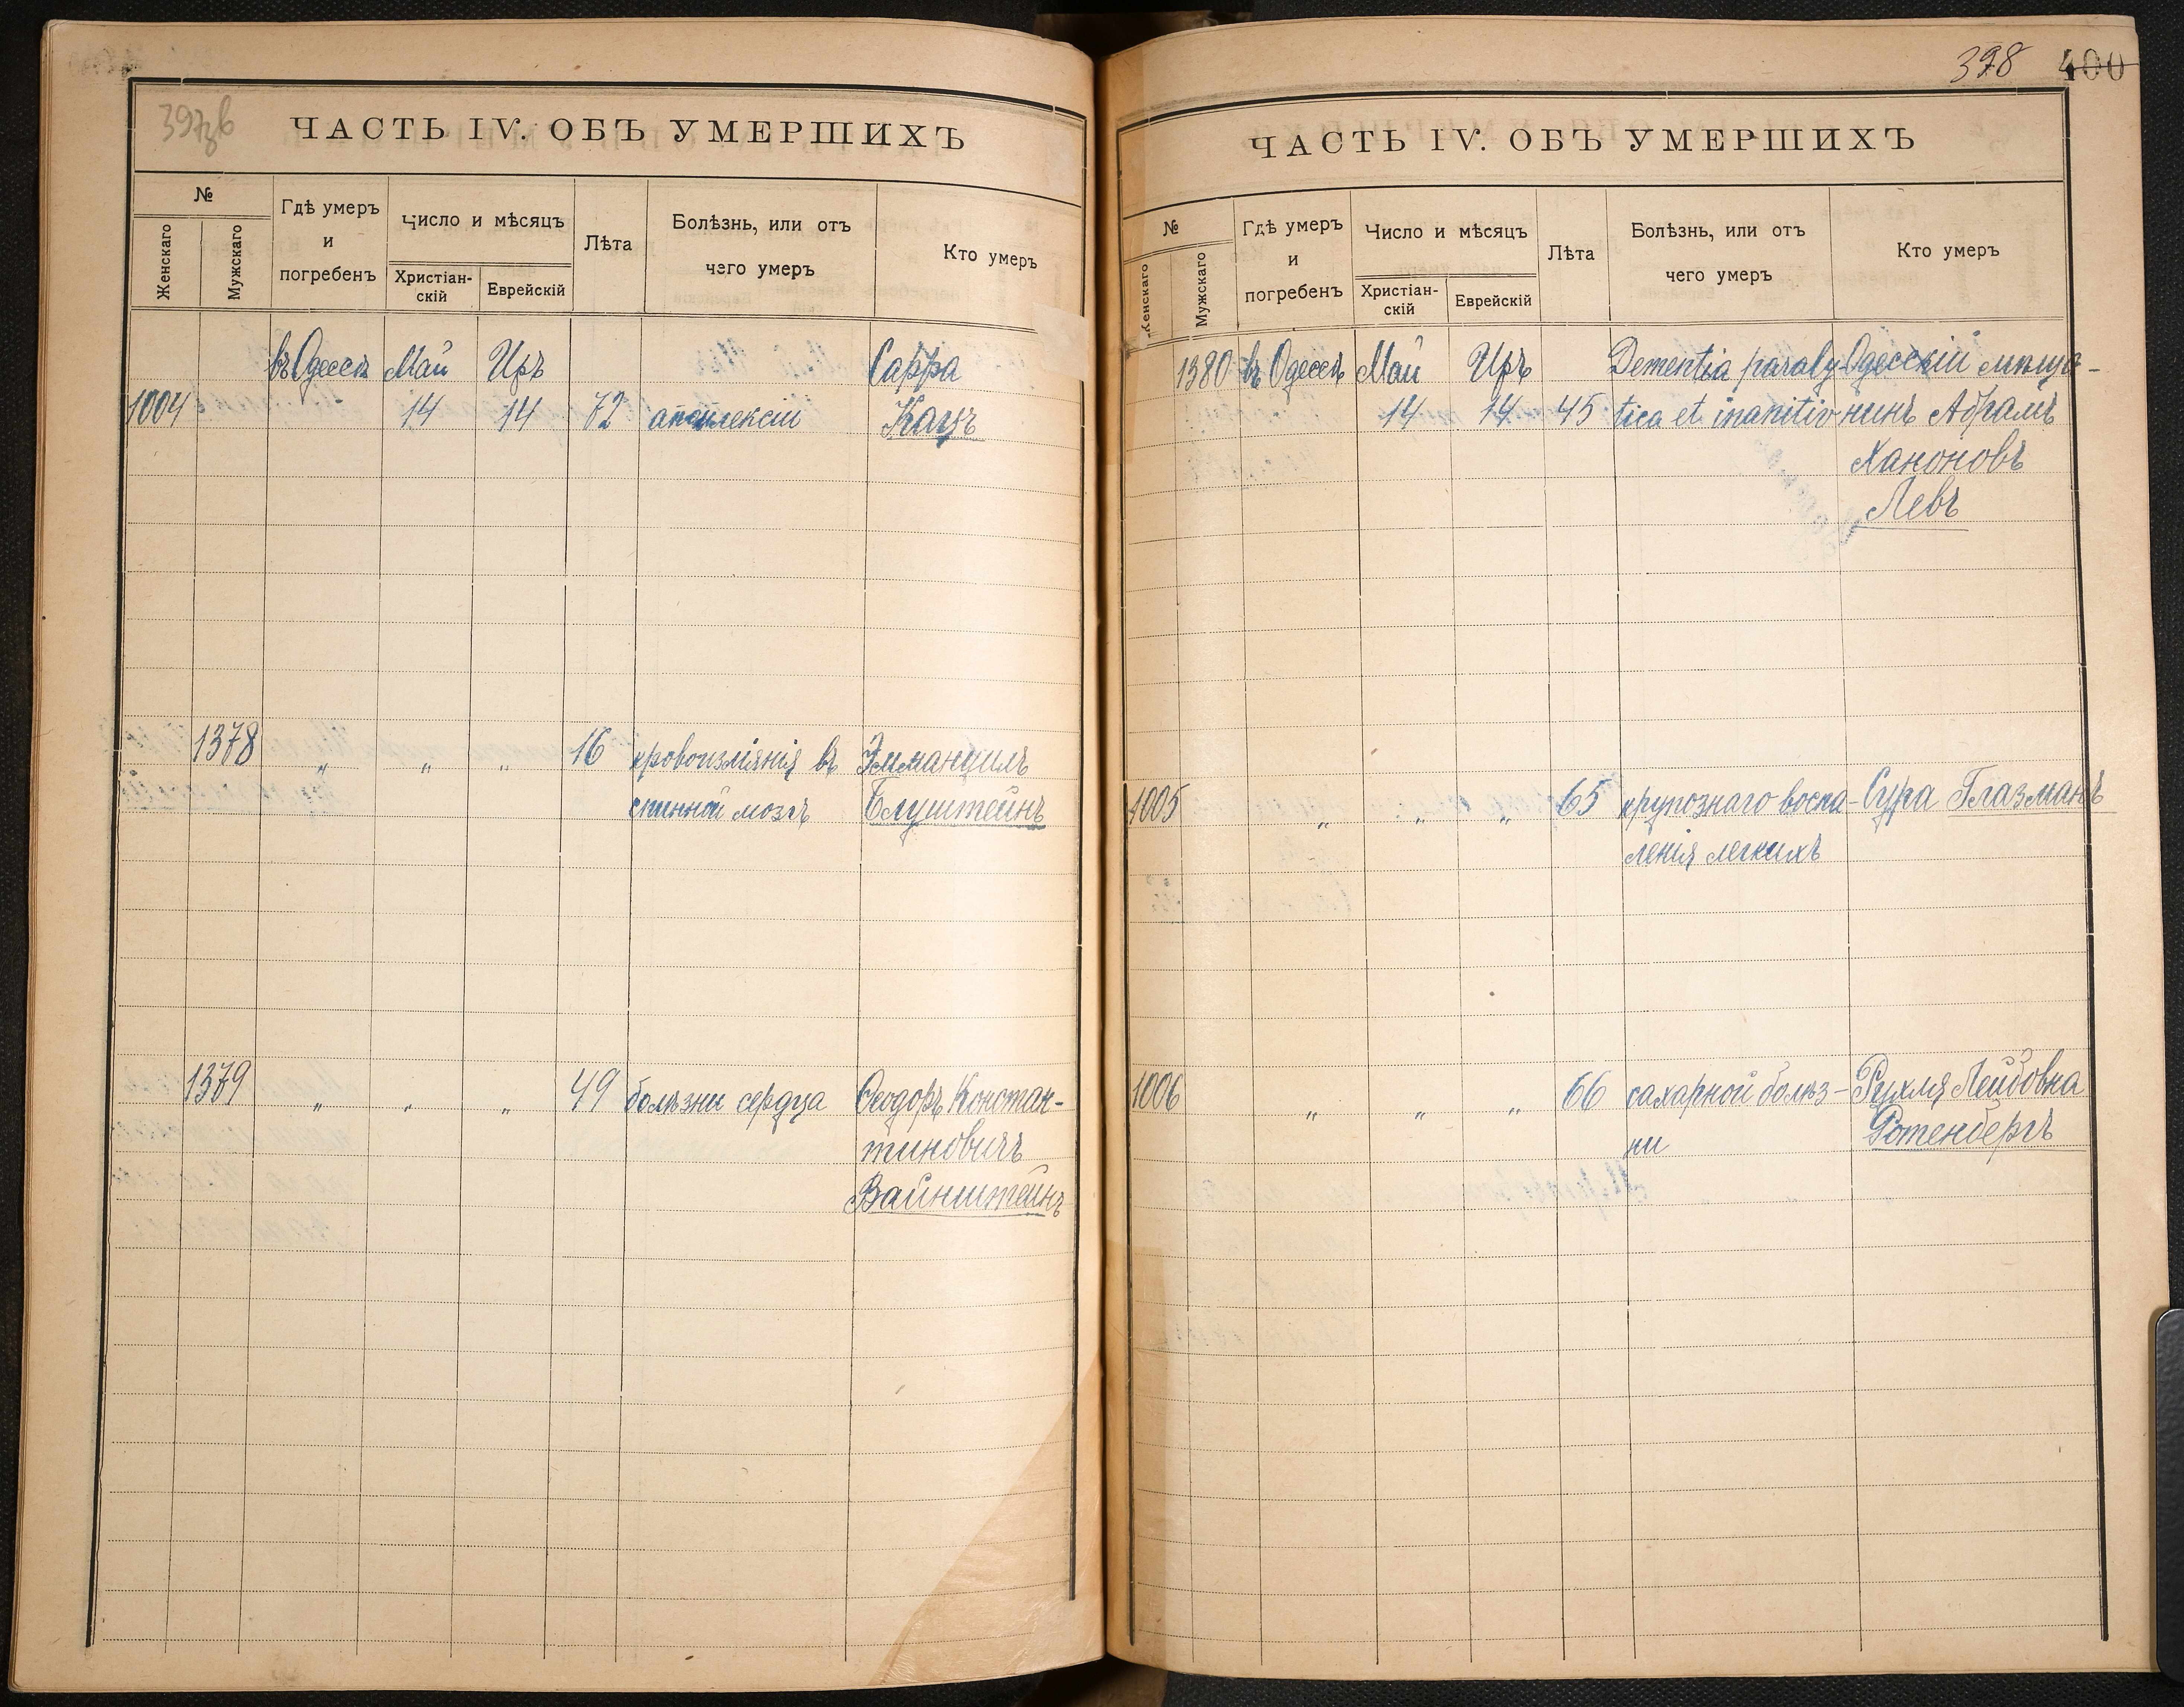 397зв
ЧАСТЬ IV. ОБЪ УМЕРШИХЪ
№
Женскаго
Мужскаго
Гдѣ умеръ
и
погребенъ
Число и мѣсяцъ
Христіан-
скій
Еврейскій
Лѣта
Болѣзнь, или отъ
чего умеръ
Кто умеръ
въ Одессѣ Май Иръ Сарра
1004 14 14 72 апоплексіи Кацъ
1378 " " " 16 кровоизліянія въ Эммануилъ
спинной мозгъ Блуштейнъ
1379 " " " 49 болѣзни сердца Ѳеодоръ Констан-
тиновичъ
Вайнштейнъ
398 400
ЧАСТЬ IV. ОБЪ УМЕРШИХЪ
№
Женскаго
Мужскаго
Гдѣ умеръ
и
погребенъ
Число и мѣсяцъ
Христіан-
скій
Еврейскій
Лѣта
Болѣзнь, или отъ
чего умеръ
Кто умеръ
1380 въ Одессѣ Май Иръ Dementia paraly- Одесскій мѣща-
14 14 45 tica et inanitio нинъ Абрамъ
Ханоновъ
Левъ
1005 " " " 65 крупознаго воспа- Сура Глазманъ
ленія легкихъ
1006 " " " 66 сахарной болѣз- Рухля Лейбовна
ни Ротенбергъ